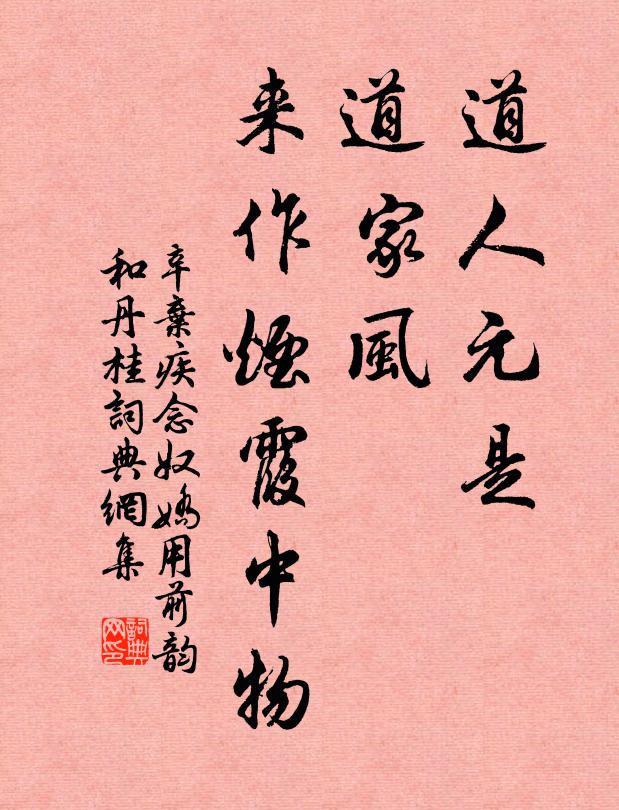 道人元是
道家風
来作煙霞中物
辛棄疾念奴嬌用前韵
和丹桂詞典網集
詞典网印